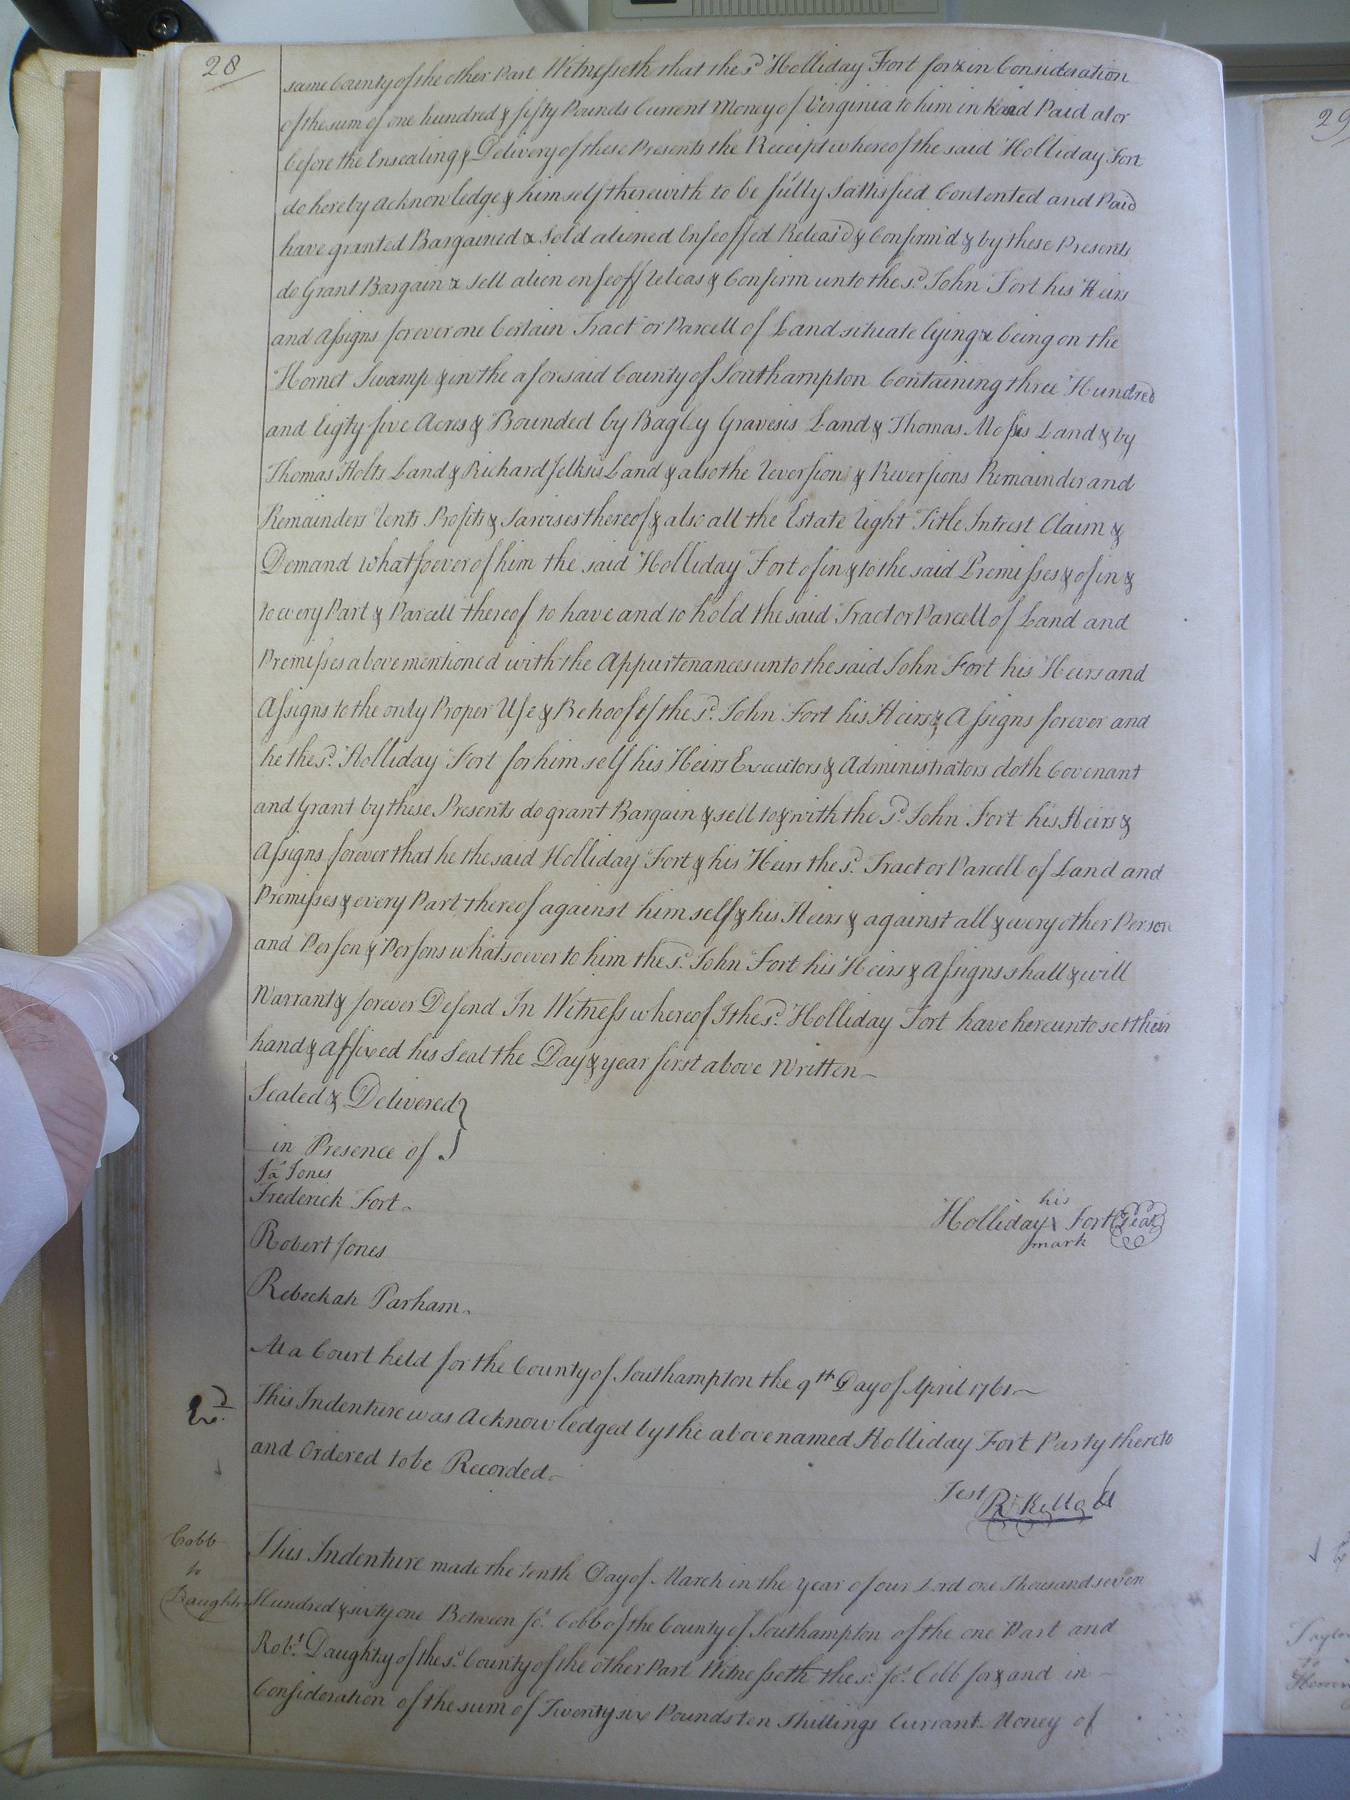 28
same County of the other Part Witnesseth that the sd Holliday Fort for & in Consideration
of the sum of one hundred & fifty Pounds Current Money of Virginia to him in hand Paid at or
before the Ensealing & Delivery of these Presents the Receipt whereof the said Holliday Fort
do hereby acknowledge & himself therewith to be fully Sattisfied Contented and Paid
have granted Bargained & Sold aliened Enfeoffed Releas'd & Confirm'd & by these Presents
do Grant Bargain & sell alien enfeoff releas & Confirm unto the sd John Fort his Heirs
and Assigns forever one Certain Tract or Parcell of Land situate lying & being on the
Hornet Swamp & in the aforesaid County of Southampton Containing three Hundred
and Eigty five Acres & Bounded by Bagley Gravesis Land & Thomas Mosses Land & by
Thomas Holts Land & Richard Jelksis Land & also the reversion & Reversions Remainder and
Remainders rents Profits & Sarvises thereof & also all the Estate right Title Intrest Claim &
Demand whatsoever of him the said Holliday Fort of in & to the said Premisses & of in &
to every Part & Parcell thereof to have and to hold the said Tract or Parcell of Land and
Premisses above mentioned with the Appurtenances unto the said John Fort his Heirs and
Assigns to the only Proper Use & Behoof of the sd. John Fort his Heirs & Assigns forever and
he the sd. Holliday Fort for him self his Heirs Executors & Administrators doth Covenant
and Grant by these Presents do grant Bargain & sell to & with the sd. John Fort his Heirs &
Assigns forever that he the said Holliday Fort & his Heirs the sd. Tract or Parcell of Land and
Premisses & every Part thereof against him self & his Heirs & against all & every other Person
and Person & Persons whatsoever to him the sd. John Fort his Heirs & Assigns shall & will
Warrant & forever Defend In Witness whereof I the sd. Holliday Fort have hereunto set their
hand & affixed his Seal the Day & year first above Written
Sealed & Delivered }
in Presence of
Ja Jones
Frederick Fort
his
Holliday X Fort Seal
mark
Robert Jones
Rebeckah Parham
At a Court held for the County of Southampton the 9th Day of April 1761
This Indenture was Acknowledged by the above named Holliday Fort Party thereto
and Ordered to be Recorded
Test R Kello
Cobb
to
Daughtr
This Indenture made the tenth Day of March in the year of our Lord one Thousand seven
Hundred & sixty one Between Jo. Cobb of the County of Southampton of the one Part and
Robt. Daughtry of the sd. County of the other Part Witnesseth the sd. Jo. Cobb for & and in
Consideration of the sum of Twenty six Pounds ten Shillings Currant Money of
29